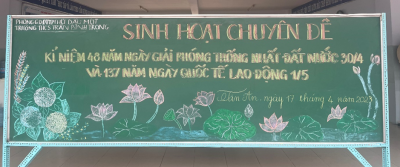 PHÒNG GDĐT THỦ DẦU MỘT
TRƯỜNG THCS TRẦN BÌNH TRỌNG
SINH HOẠT CHUYÊN ĐỀ
KỈ NIỆM 48 NĂM NGÀY GIẢI PHÓNG THỐNG NHẤT ĐẤT NƯỚC 30/4
VÀ 137 NĂM NGÀY QUỐC TẾ LAO ĐỘNG 1/5
Tân An, ngày 17 tháng 4 năm 2023